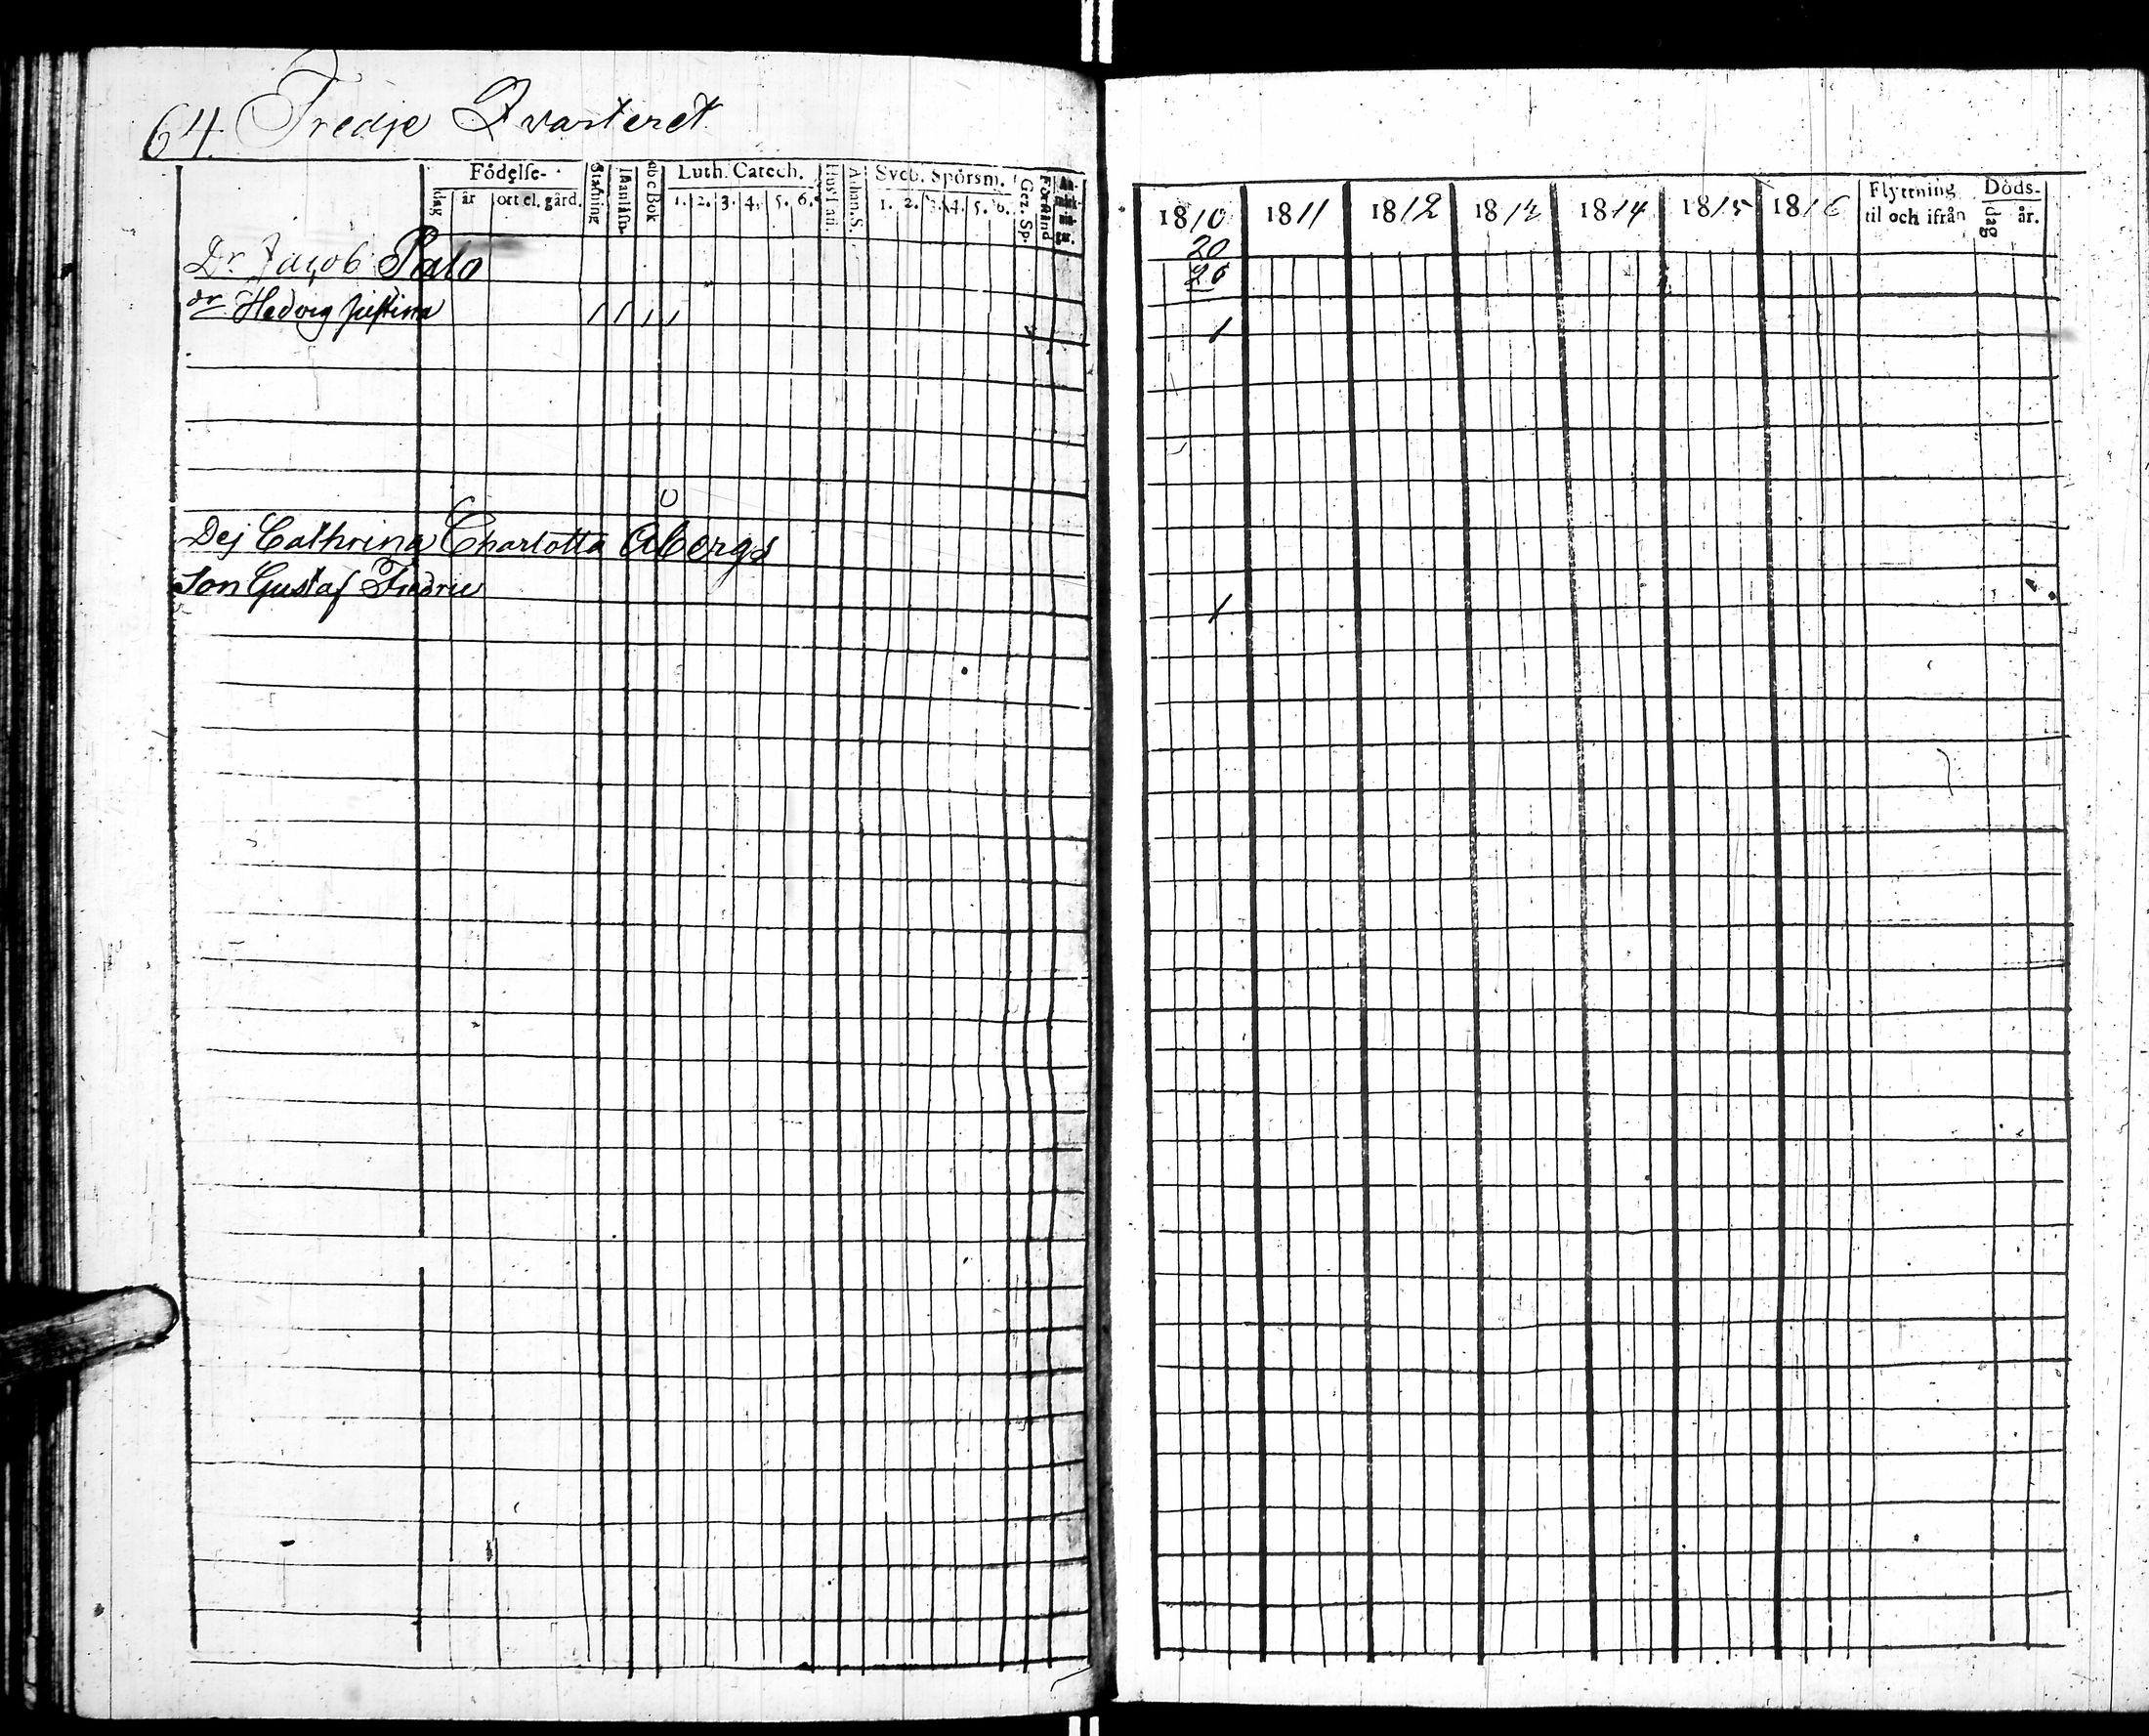 64. Tredje Qvarteret
Födelse-
dag år ort el. gård.
Stafning
Abc Bok
Luth. Catech.
1. 2. 3. 4. 5. 6.
Hus Tafl
Athan. S.
Sveb. Spörsm.
1. 2. 3. 4. 5. 6.
Gez. Sp.
Förstånd
An-
märk-
nin-
gar.
Dr Jacob Palo
dr Hedvig Justina
Dej Cathrina Charlotta Åbergs
Son Gustaf Fredric
1810 1811 1812 1813 1814 1815 1816
Flyttning
til och ifrån
Döds-
dag år.
20
20
1
1